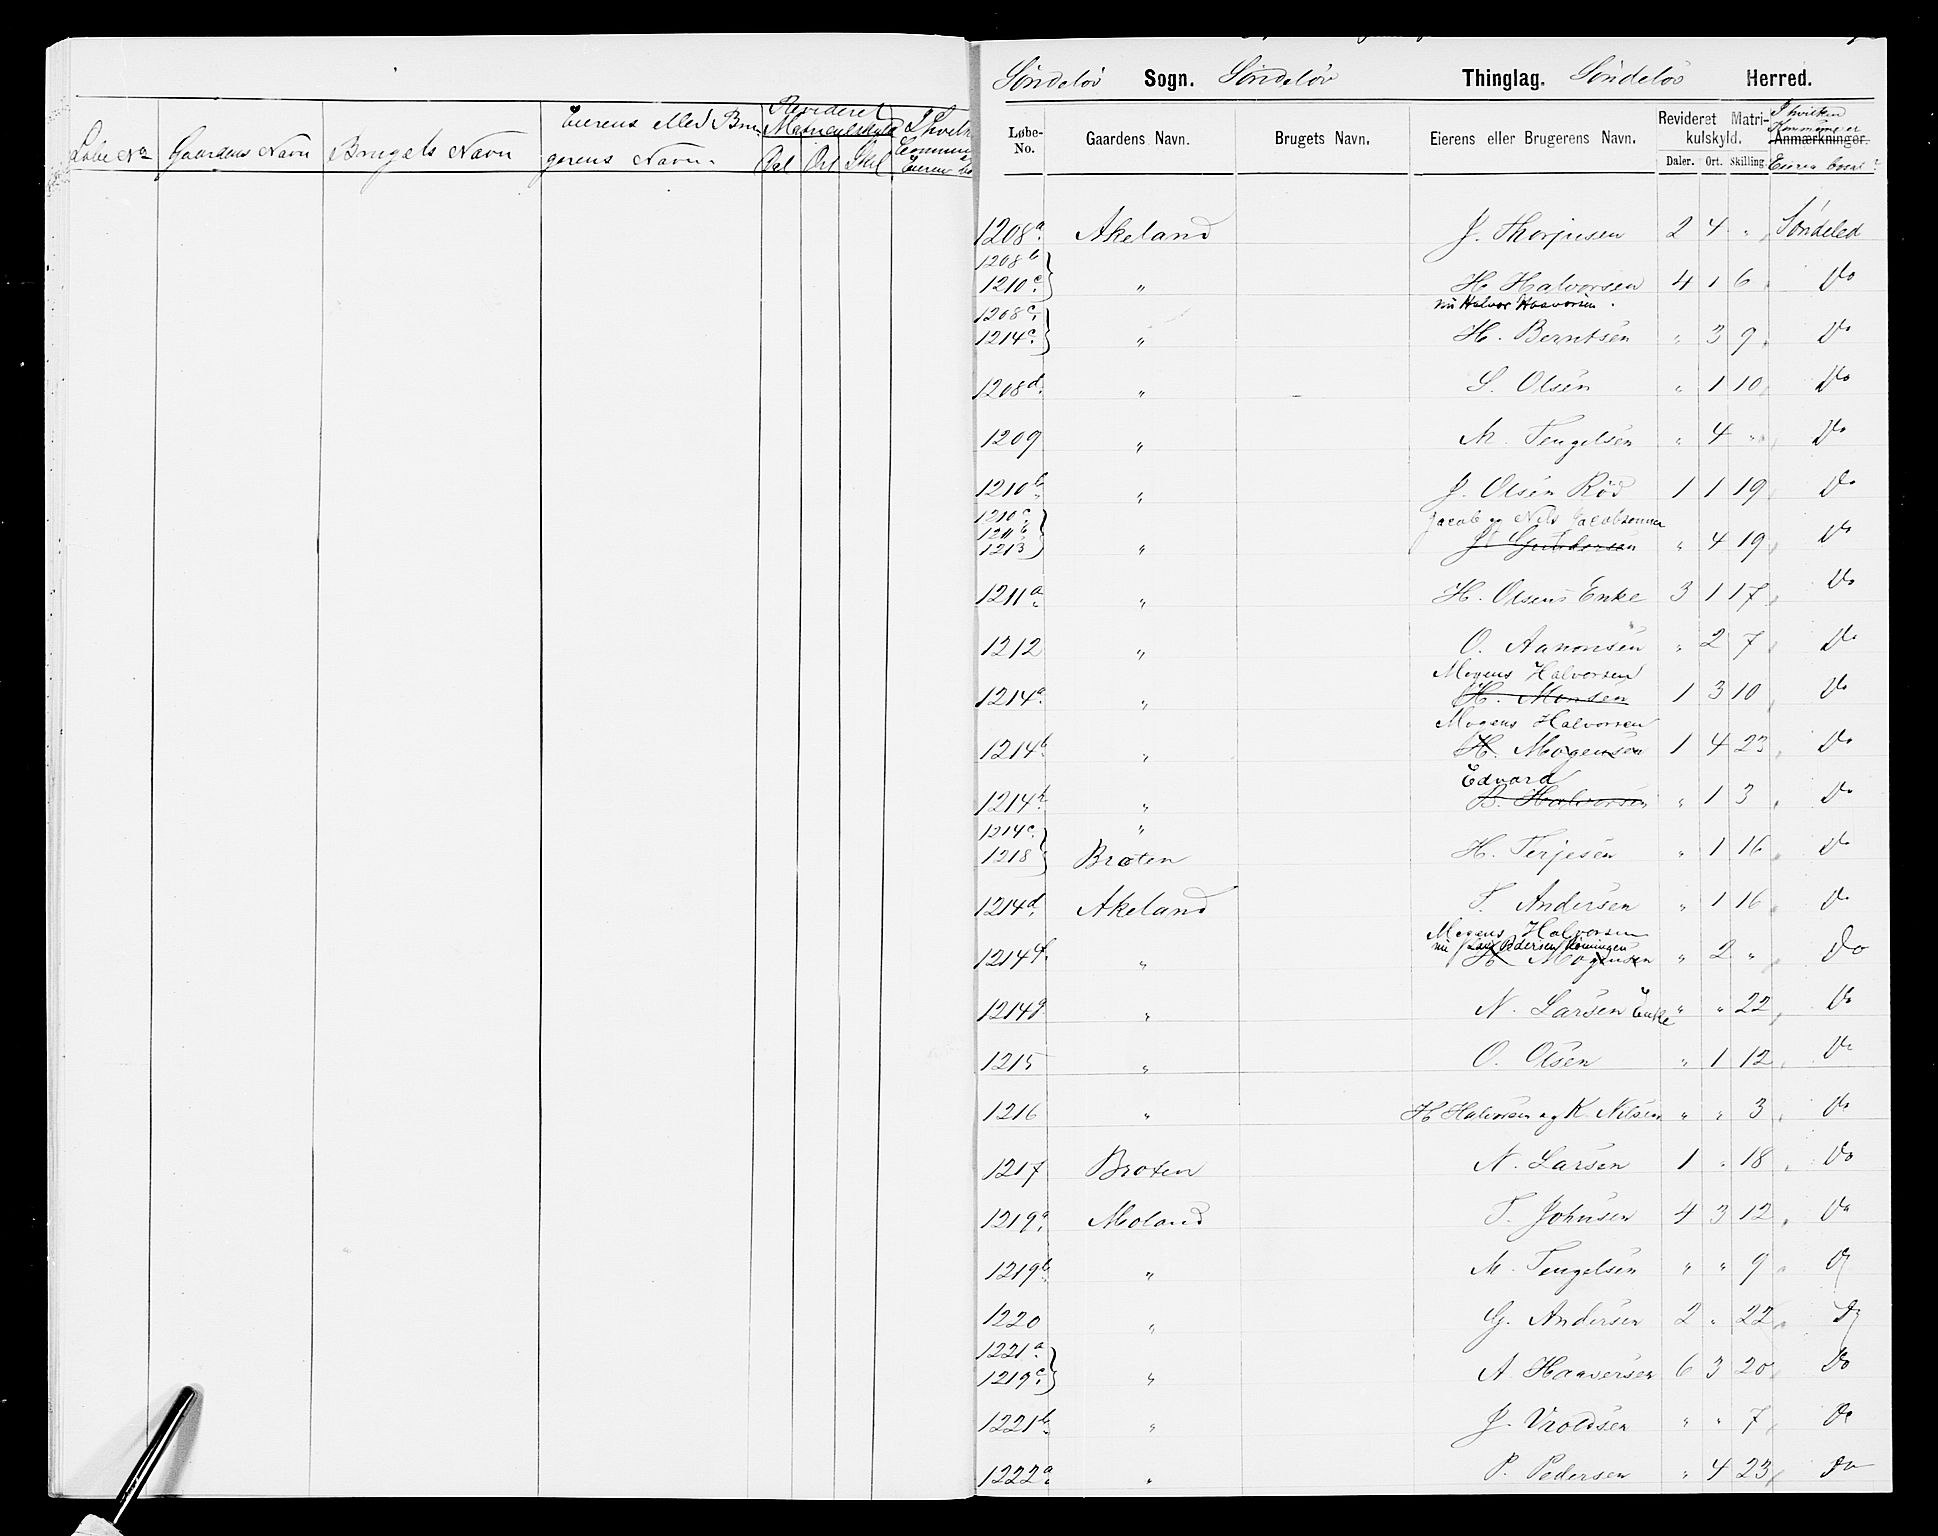 Løbe No
Gaardens Navn
Brugets Navn
Eierens eller Bru-
gerens Navn.
Revideret
Matriculskyld
Dal Ort Skil
I hvilken
Commune
Eieren bo
Søndeløv Sogn. Søndeløv Thinglag. Søndeløv Herred.
Løbe-No. Gaardens Navn. Brugets Navn. Eierens eller Brugerens Navn. Revideret Matrikulskyld. Daler. Ort. Skilling. Anmærkninger. I hvilken Kommune er Eieren bosat?
1208a. Akeland J. Thorjusen 2 4 " Søndeled
1208b
1210c. } " H. Halvorsen 4 1 6 Do
nu Halvor Haavorsen.
1208c.
1214c. } " H. Berntsen " 3 9 Do
1208d. " S. Olsen " 1 10 Do
1209 " M. Tengelsen " 4 " Do
1210b. " J. Olsen Rød 1 1 19 Do
Jacob og Nils Jacobsønner
1210c.
1211b
1213 } " J. Gundersen " 4 19 Do
1211a. " H. Olsens Enke 3 1 17 Do
1212 " O. Aanonsen " 2 7 Do
Mogens Halvorsen
1214a. " H. Monsen 1 3 10 Do
Mogens Halvorsen
1214b. " H. Mogensen 1 4 23 Do
Edvard
1214h. " B. Halvorsen " 1 3 Do
1214e. "
1218 } Broten H. Terjesen " 1 16 Do
1214d. Akeland T. Andersen " 1 16 Do
Mogens Halvorsen
nu Lars Pedersen
1214f. " H. Mogensen " 2 " Do
1214g. " N. Larsen Enke " " 22 Do
1215 " O. Olsen " 1 12 Do
1216 " H. Halvorsen og K. Nilsen " " 3 Do
1217 Broten N. Larsen 1 " 18 Do
1219a. Moland T. Johnsen 4 3 12 Do
1219b. " M. Tengelsen " " 9 Do
1220 " G. Andersen 2 " 22 Do
1221a.
1219c. } " A. Haaversen 6 3 20 Do
1221b. " J. Vroldsen " " 7 Do
1222a. " P. Pedersen " 4 23 Do